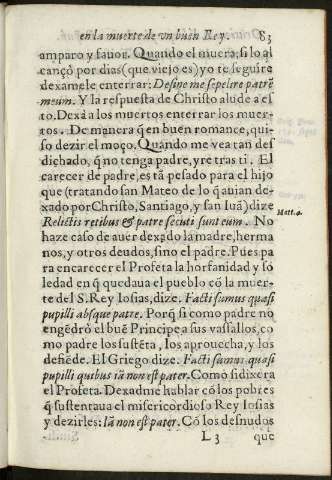 en la muerte de vn buen Rey. 83
amparo y fauor. Quando el muera, si lo al
cançò por dias (que viejo es) yo te seguire
dexamele enterrar: Desine me sepelire patrẽ
meum. Y la respuesta de Christo alude a es
to. Dexà a los muertos enterrar los muer-
tos. De manera q̃ en buen romance, qui-
so dezir el moço. Quando me vea tan des
dichado, q̃ no tenga padre, yre tras ti. El
carecer de padre, es tã pesado para el hijo
que (tratando san Mateo de lo q̃ auian de-
xado por Christo, Santiago, y san Iuã) dize
Relictis retibus & patre secuti sunt eum. No
Matt. 4.
haze caso de auer dexado la madre, herma
nos, y otros deudos, sino el padre. Pues pa
ra encarecer el Profeta la horfanidad y so
ledad en q̃ quedaua el pueblo cõ la muer-
te del S. Rey Iosias, dize. Facti sumus quasi
pupilli absque patre. Porq̃ si como padre no
engẽdrò el buẽ Principe a sus vassallos, co
mo padre los sustẽta, los aprouecha, y los
defiẽde. El Griego dize. Facti sumus quasi
pupilli quibus iã non est pater. Como si dixera
el Profeta. Dexadme hablar cõ los pobres
q̃ sustentaua el misericordioso Rey Iosias
y dezirles: Iã non est pater. Cõ los desnudos
L 3 que